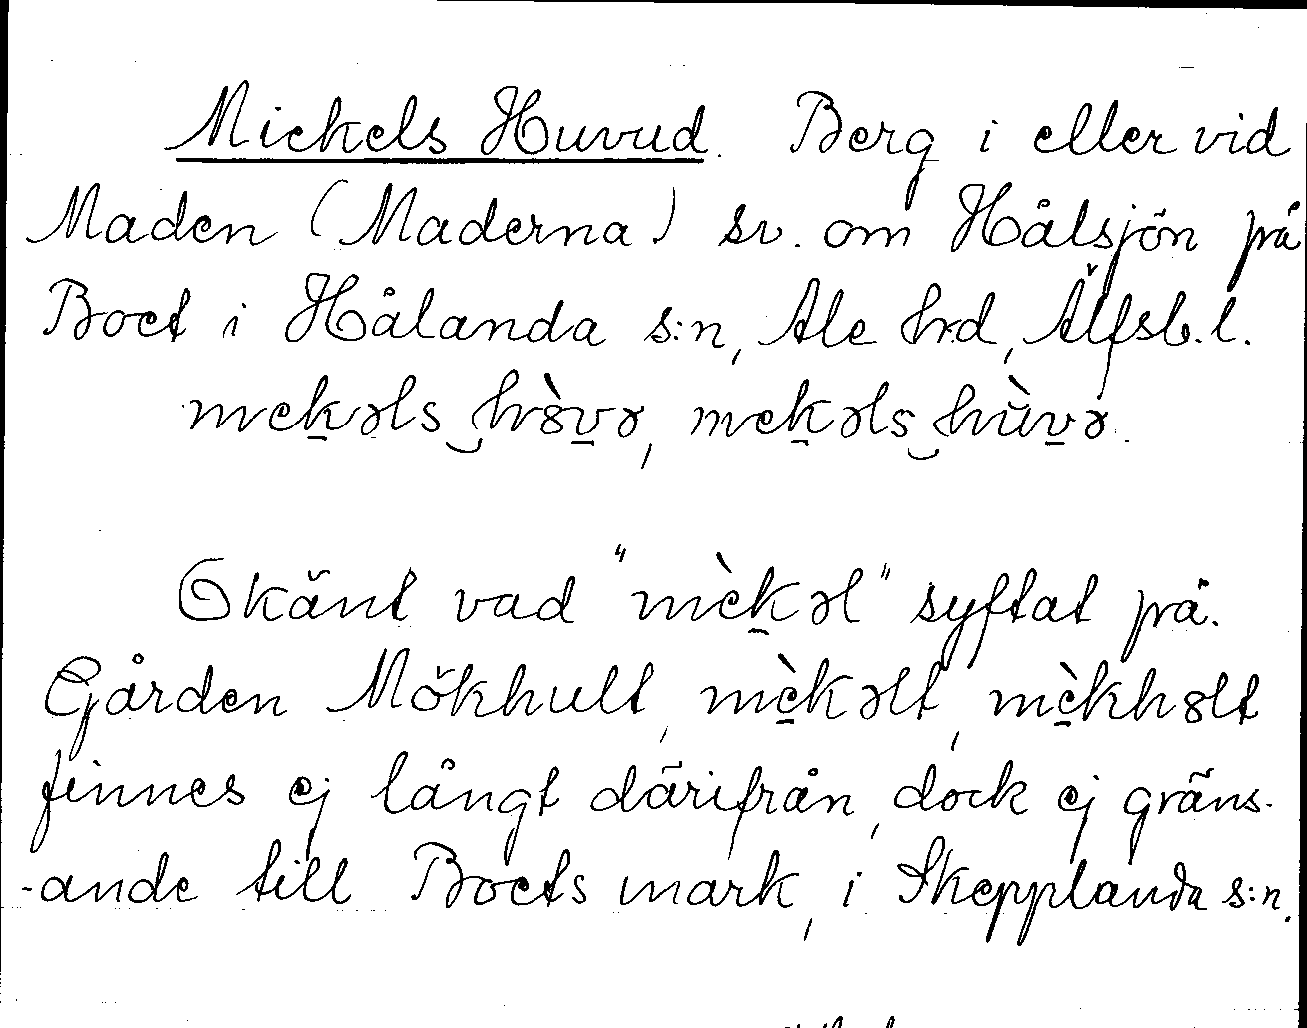 Mickels Huvud. Berg i eller vid
Maden (Maderna) sv. om Hålsjön på
Boet i Hålanda s:n, Ale hrd, Älfsb. l.
mek̲əls‿hȣ̀v̲ə, mek̲əls‿hùv̲ə.
Okänt vad "mèk̲əl" syftat på.
Gården Mökhult, mè̲kəlt, mè̲khȣlt
finnes ej långt därifrån, dock ej gräns-
-ande till Boets mark, i Skepplanda s:n.